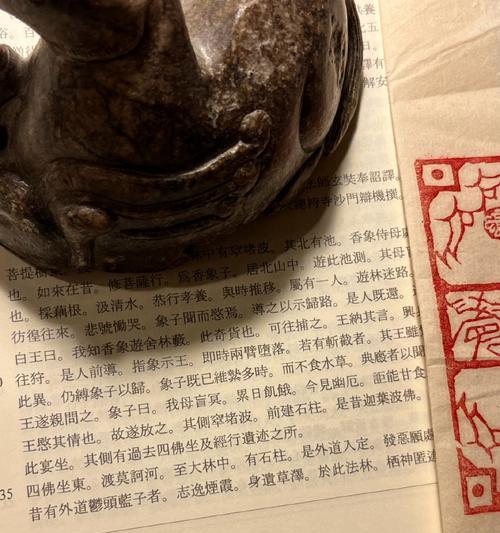 法師玄奘奉詔譯。
寺沙門辯機撰。
林中有窣堵波。其北有池。香象侍母處
也。如來在昔。修菩薩行。爲香象子。居北山中。遊此池測。其母
也。採藕根。汲清水。恭行孝養。與時推移。屬有一人。遊林迷路。
彷徨往來。悲號慟哭。象子聞而愍焉。導之以示歸路。是人既還。
白王曰。我知香象遊舍林藪。此奇貨也。可往捕之。王納其言。興
往狩。是人前導。指象示王。即時兩臂墮落。若有斬截者。其王雖
此異。仍縛象子以歸。象子既已維縶多時。而不食水草。典廄者以聞
王遂親問之。象子曰。我母盲冥。累日飢餓。今見幽厄。詎能甘食
王愍其情也。故遂放之。其側窣堵波。前建石柱。是昔迦葉波佛。
此宴坐。其側有過去四佛坐及經行遺迹之所。
35 四佛坐東。渡莫訶河。至大林中。有石柱。是外道入定。發惡願處
昔有外道鬱頭藍子者。志逸煙霞。身遺草澤。於此法林。栖神匿迹